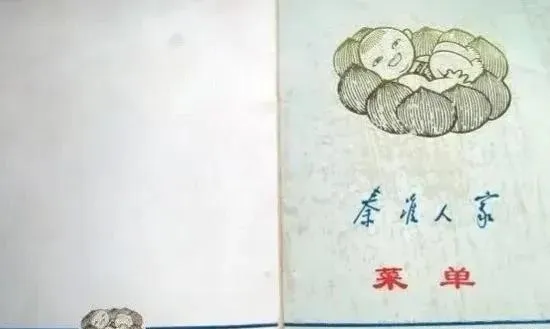 秦淮人家
菜单